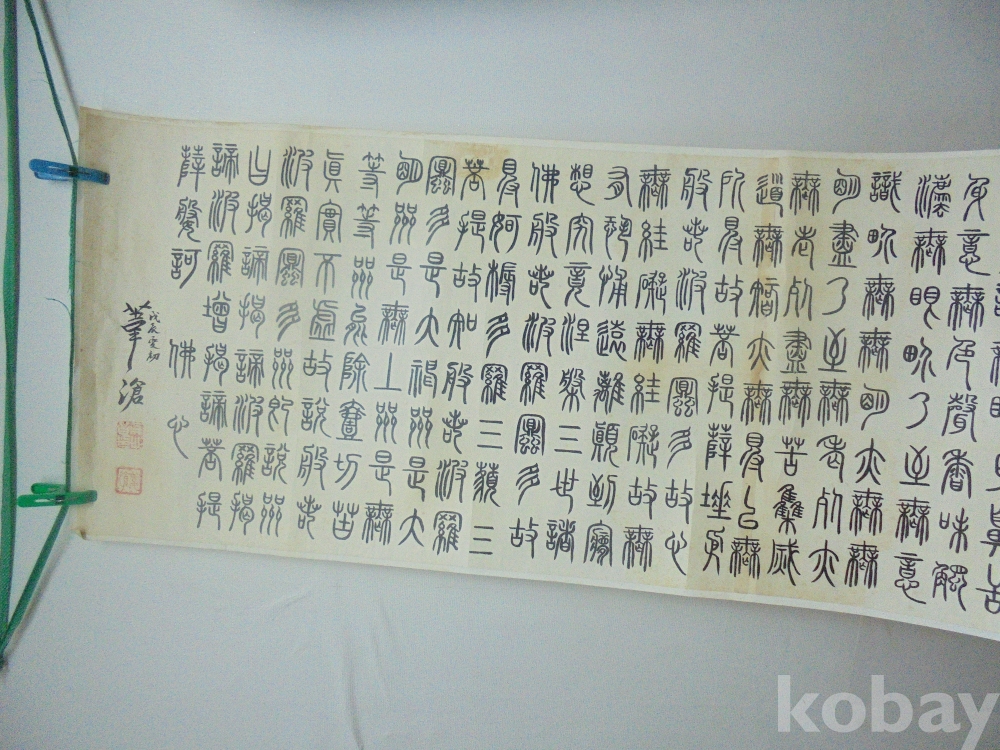 身意無色聲香味觸
法無眼界乃至無意
識界無無明亦無無
明盡乃至無老死亦
無老死盡無苦集滅
道無智亦無得以無
所得故菩提薩埵依
般若波羅蜜多故心
無罣礙無罣礙故無
有恐怖遠離顛倒夢
想究竟涅槃三世諸
佛般若波羅蜜多故
得阿耨多羅三藐三
菩提故知般若波羅
蜜多是大神呪是大
明呪是無上呪是無
等等呪能除壹切苦
眞實不虛故說般若
波羅蜜多呪即說呪
曰揭諦揭諦波羅揭
諦波羅增揭諦菩提
薩婆訶 佛心
戊辰
滄
kobay